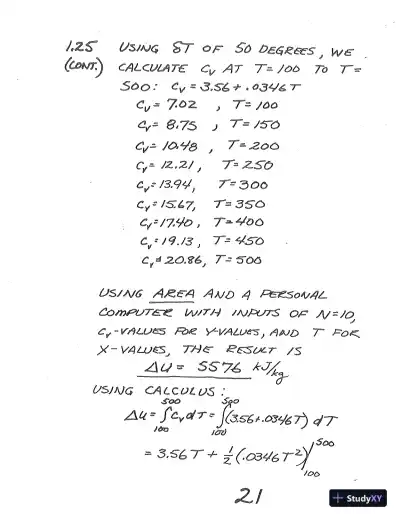 1.25 USING δT OF 50 DEGREES, WE
(CONT.) CALCULATE Cv AT T=100 TO T=
500: Cv = 3.56 + .0346T
Cv = 7.02 , T=100
Cv = 8.75 , T=150
Cv = 10.48 , T=200
Cv = 12.21, T=250
Cv = 13.94, T=300
Cv = 15.67, T=350
Cv = 17.40, T=400
Cv = 19.13, T=450
Cv = 20.86, T=500
USING AREA AND A PERSONAL
COMPUTER WITH INPUTS OF N=10,
Cv-VALUES FOR Y-VALUES, AND T FOR
X-VALUES, THE RESULT IS
Δu = 5576 kJ/kg
USING CALCULUS:
Δu = ∫₁₀₀⁵⁰⁰ Cv dT = ∫₁₀₀⁵⁰⁰ (3.56+.0346T) dT
= 3.56T + ½(.0346T²)|₁₀₀⁵⁰⁰
21
StudyXY